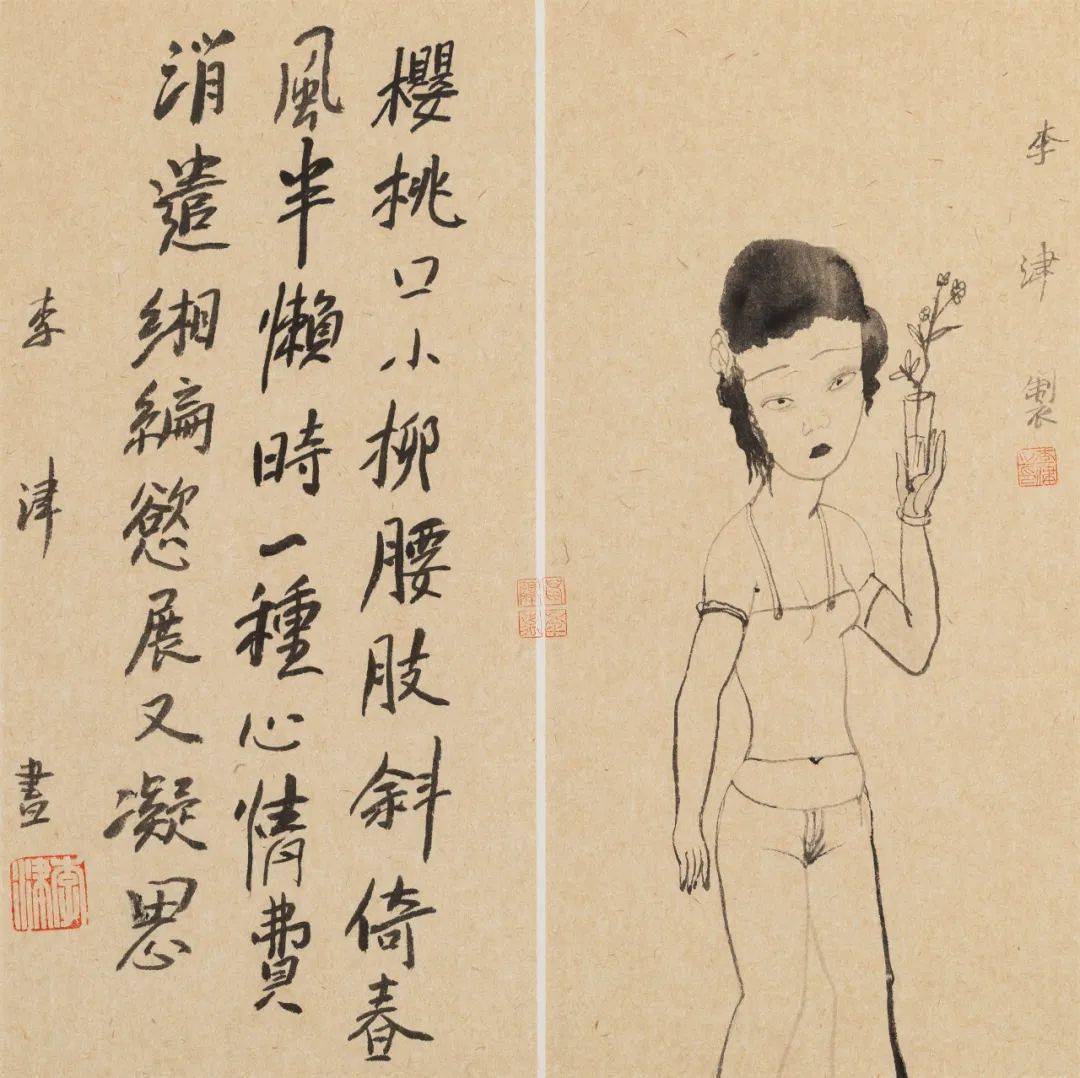 李津製
李津之印
櫻桃口小柳腰肢斜倚春
風半懶時一種心情費
消遣緗編慾展又凝思
李津畫
李津